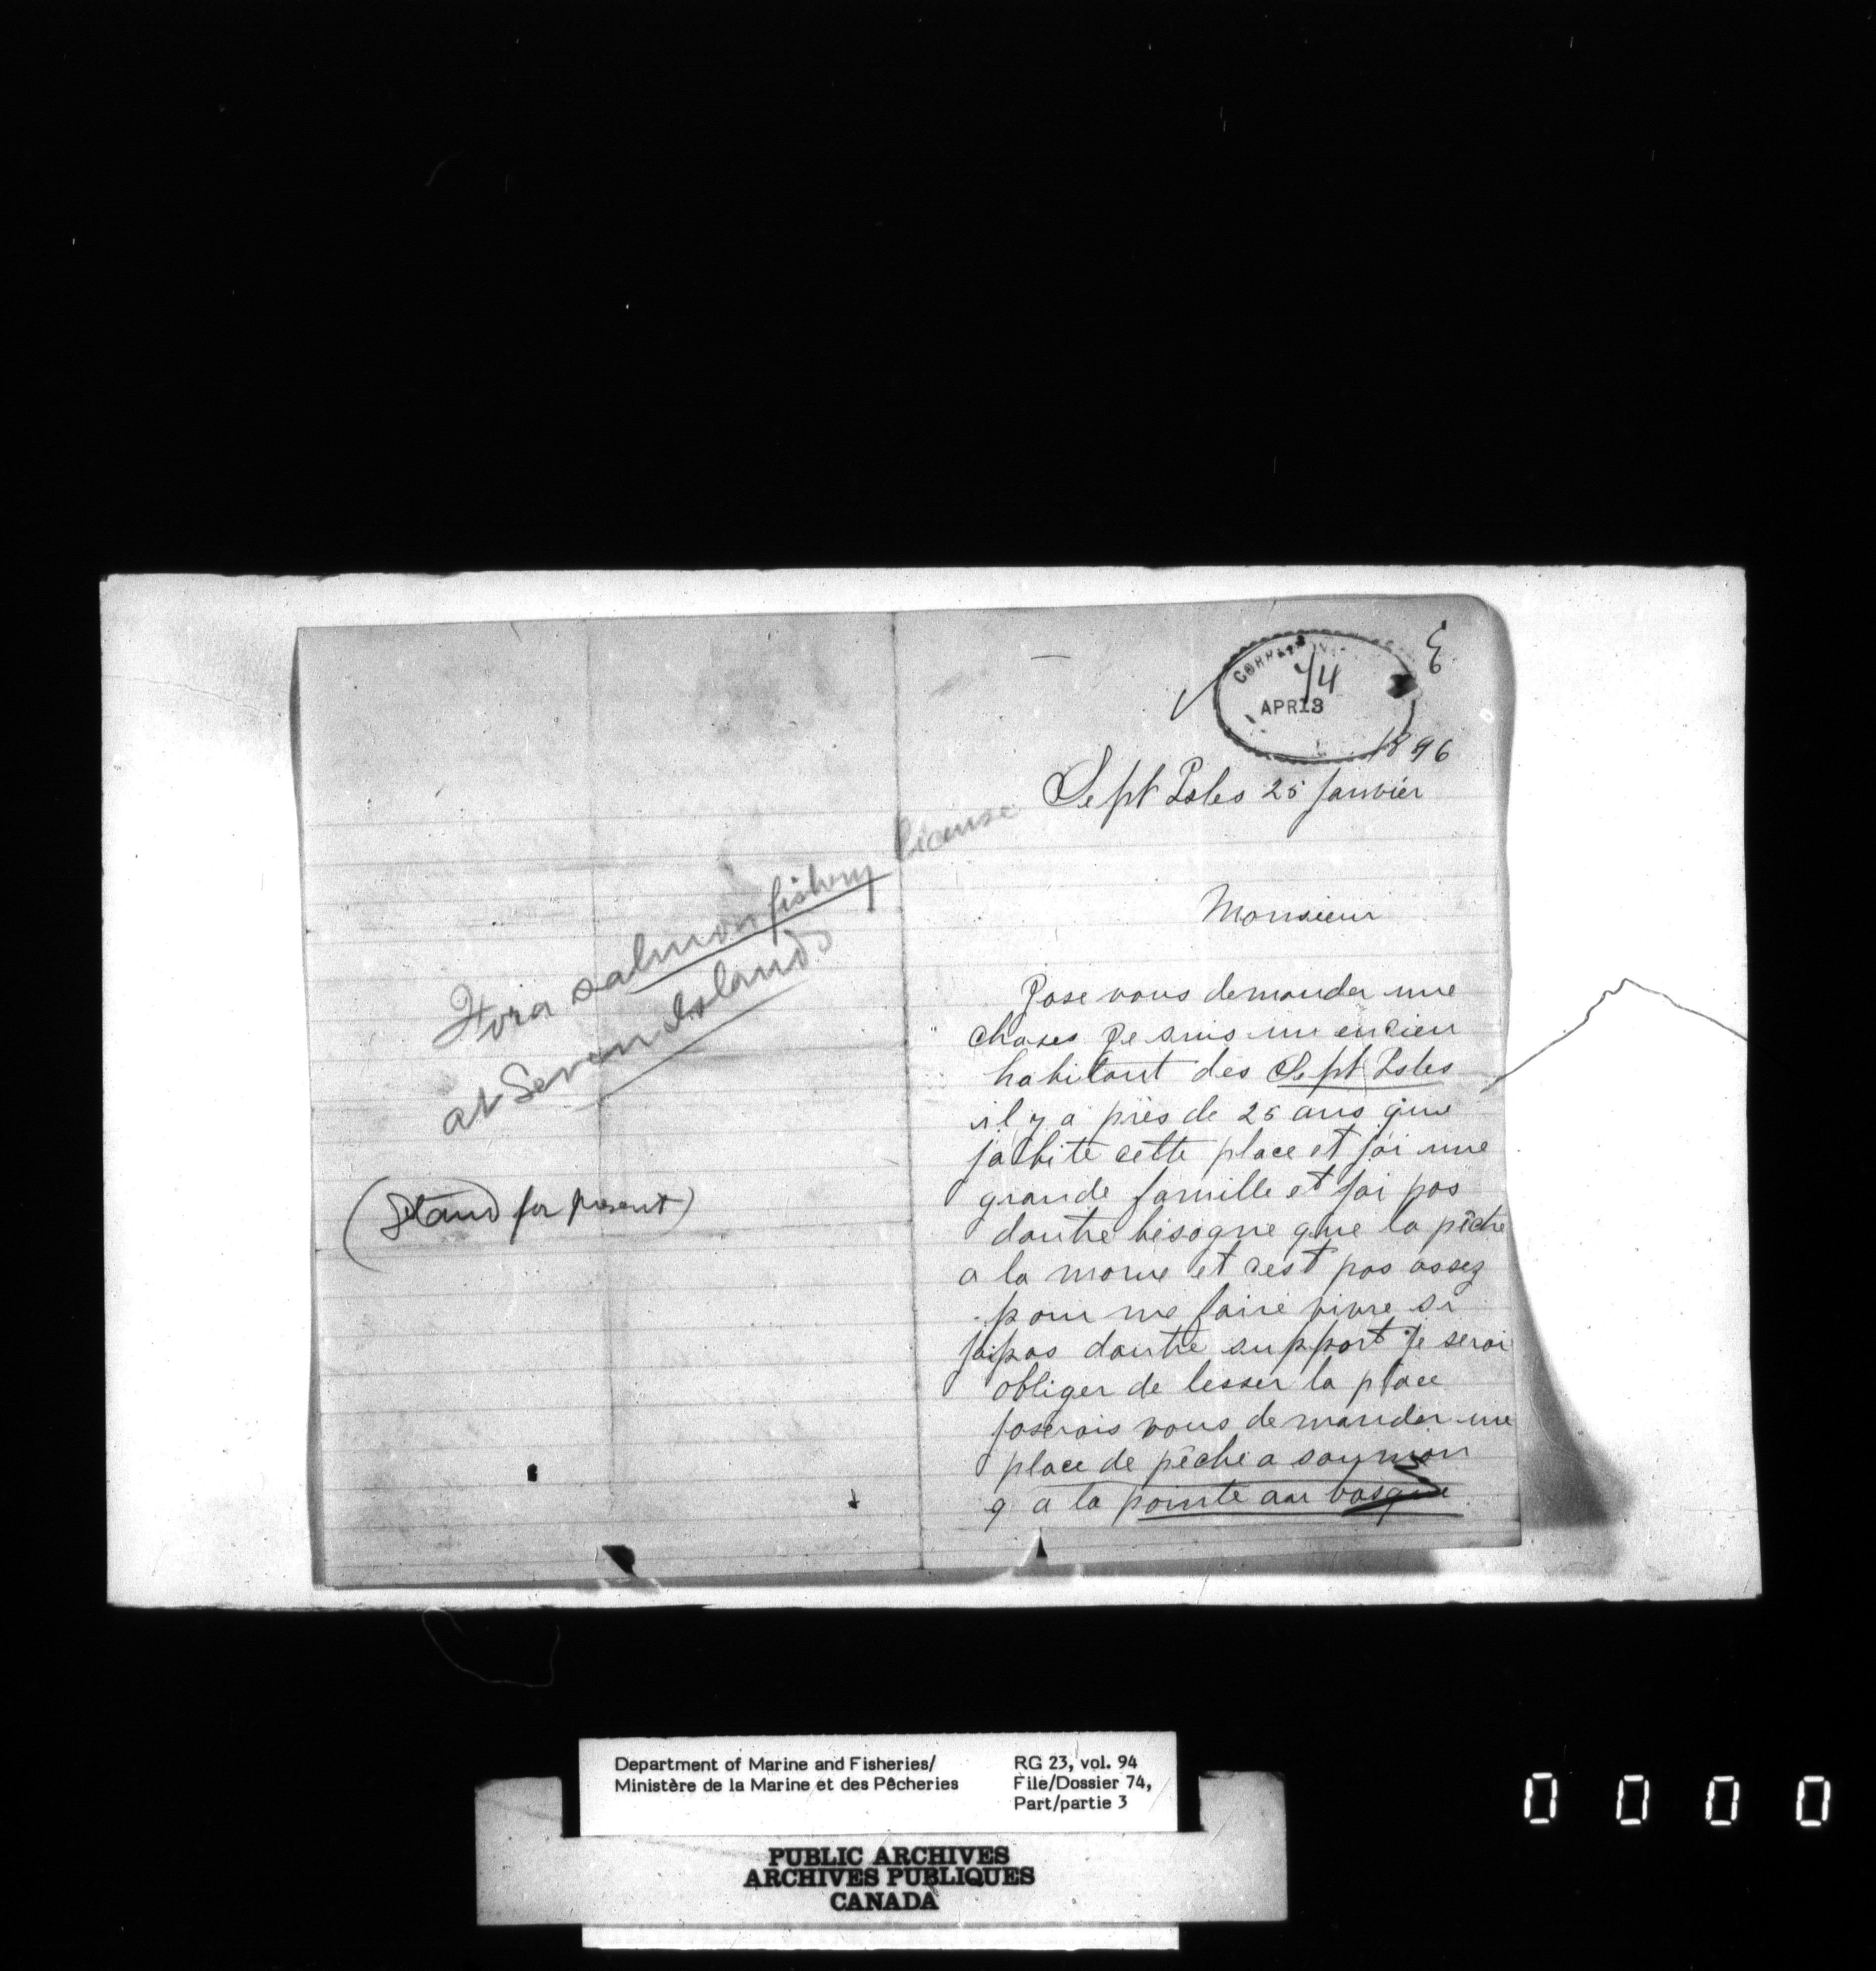 For a salmon fishery license
at Seven Islands
(Stand for present)
74
APR 13
1896
Sept Isles 25 janvier
Monsieur
Jose vous demander une
choses Je suis un encien
habitant des Sept Isles
il y a près de 25 ans que
jabite cette place et jai une
grande famille et jai pas
dautre besogne que la pêche
a la morue et cest pas assez
pour me faire vivre si
jai pas dautre support je serai
obliger de lesser la place
joserais vous demander une
place de pêche a saumon
a la pointe au basque
Department of Marine and Fisheries/
Ministère de la Marine et des Pêcheries
RG 23, vol. 94
File/Dossier 74,
Part/partie 3
PUBLIC ARCHIVES
ARCHIVES PUBLIQUES
CANADA
0 0 0 0